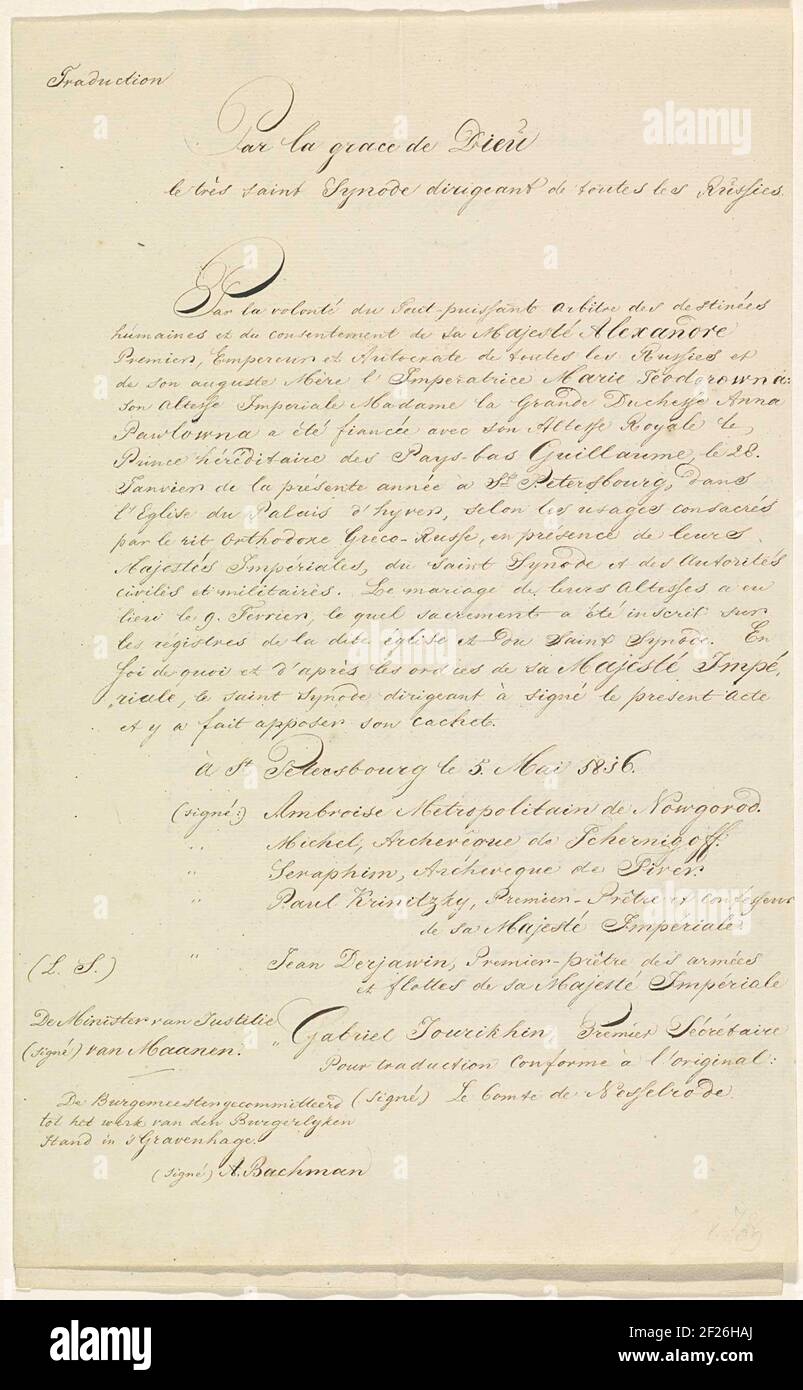 Traduction
Par la grace de Dieu
le très saint Synode dirigeant de toutes les Russies.
Par la volonté du Tout-puissant arbitre des destinées
humaines et du consentement de sa Majesté Alexandre
Premier, Empereur et Autocrate de toutes les Russies et
de son auguste Mère l'Impératrice Marie Feodorowna:
son Altesse Imperiale Madame la Grande Duchesse Anna
Pawlowna a été fiancée avec son Altesse Royale le
Prince héréditaire des Pays-bas Guillaume, le 28.
Janvier de la présente année à St. Petersbourg, dans
l'Eglise du Palais d'hyver, selon les usages consacrés
par le rit Orthodoxe Gréco-Russe, en présence de leurs
Majestés Impériales, du Saint Synode et des Autorités
civiles et militaires. Le mariage de leurs Altesses a eu
lieu le 9. Fevrier, le quel sacrement a été inscrit sur
les régistres de la dite église et du Saint Synode. En
foi de quoi et d'après les ordres de sa Majesté Impé,
riale, le saint Synode dirigeant à signé le present acte
et y a fait apposer son cachet.
à St. Petersbourg le 5. Mai 1816.
(signé:) Ambroise Métropolitain de Nowgorod.
" Michel, Archevêque de Tchernigoff.
" Seraphim, Archevêque de Twer.
" Paul Krinitzky, Premier-Prêtre et Confesseur
de sa Majesté Impériale.
" Jean Derjawin, Premier-prêtre des armées
et flottes de sa Majesté Impériale
(L. S.)
" Gabriel Jourikhin Premier Sécrétaire
Pour traduction conforme à l'original:
(signé) Le Comte de Nesselrode.
De Minister van Justitie
(signé) van Maanen.
De Burgemeester gecommitteerd
tot het werk van den Burgerlyken
Stand in 's Gravenhage.
(signé) A. Bachman
alamy
alamy
a
a
a
a
alamy
Image ID: 2F26HAJ
www.alamy.com